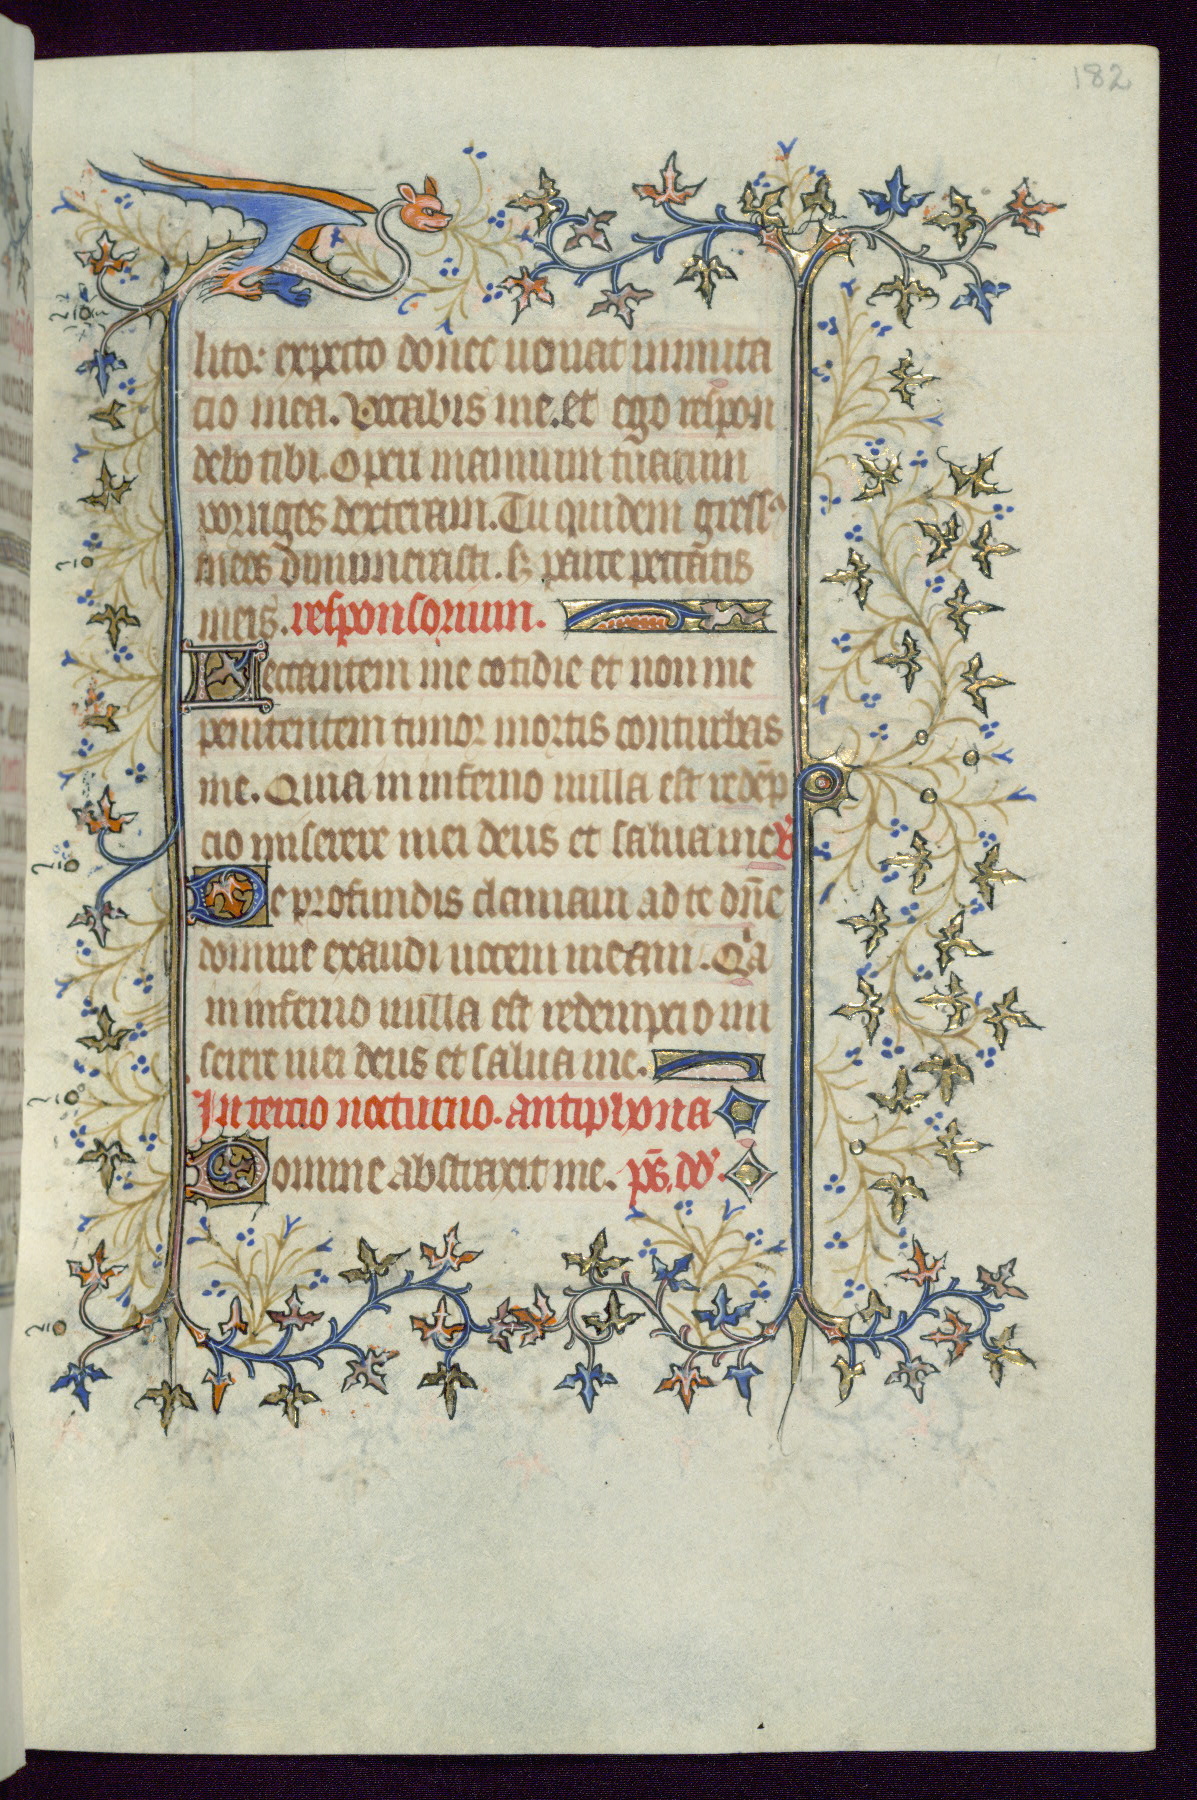 182
lito: expecto donec ueniat inmuta
cio mea. Vocabis me. et ego respon
debo tibi. Operi manuum tuarum
porriges dexteram. Tu quidem gress⁹
meos dinumerasti. s; parce peccātis
meis. responsorium.
Peccantem me cotidie et non me
penitentem timor mortis conturbas
me. Quia in inferno nulla est redēp
cio miserere mei deus et salua me ℣
De profundis clamaui ad te dn̄e
domine exaudi uocem meam. Qͥa
in inferno nulla est redempcio mi
serere mei deus et salua me.
In tercio nocturno. antiphona
Domine abstraxit me. ps̄. dd̄.